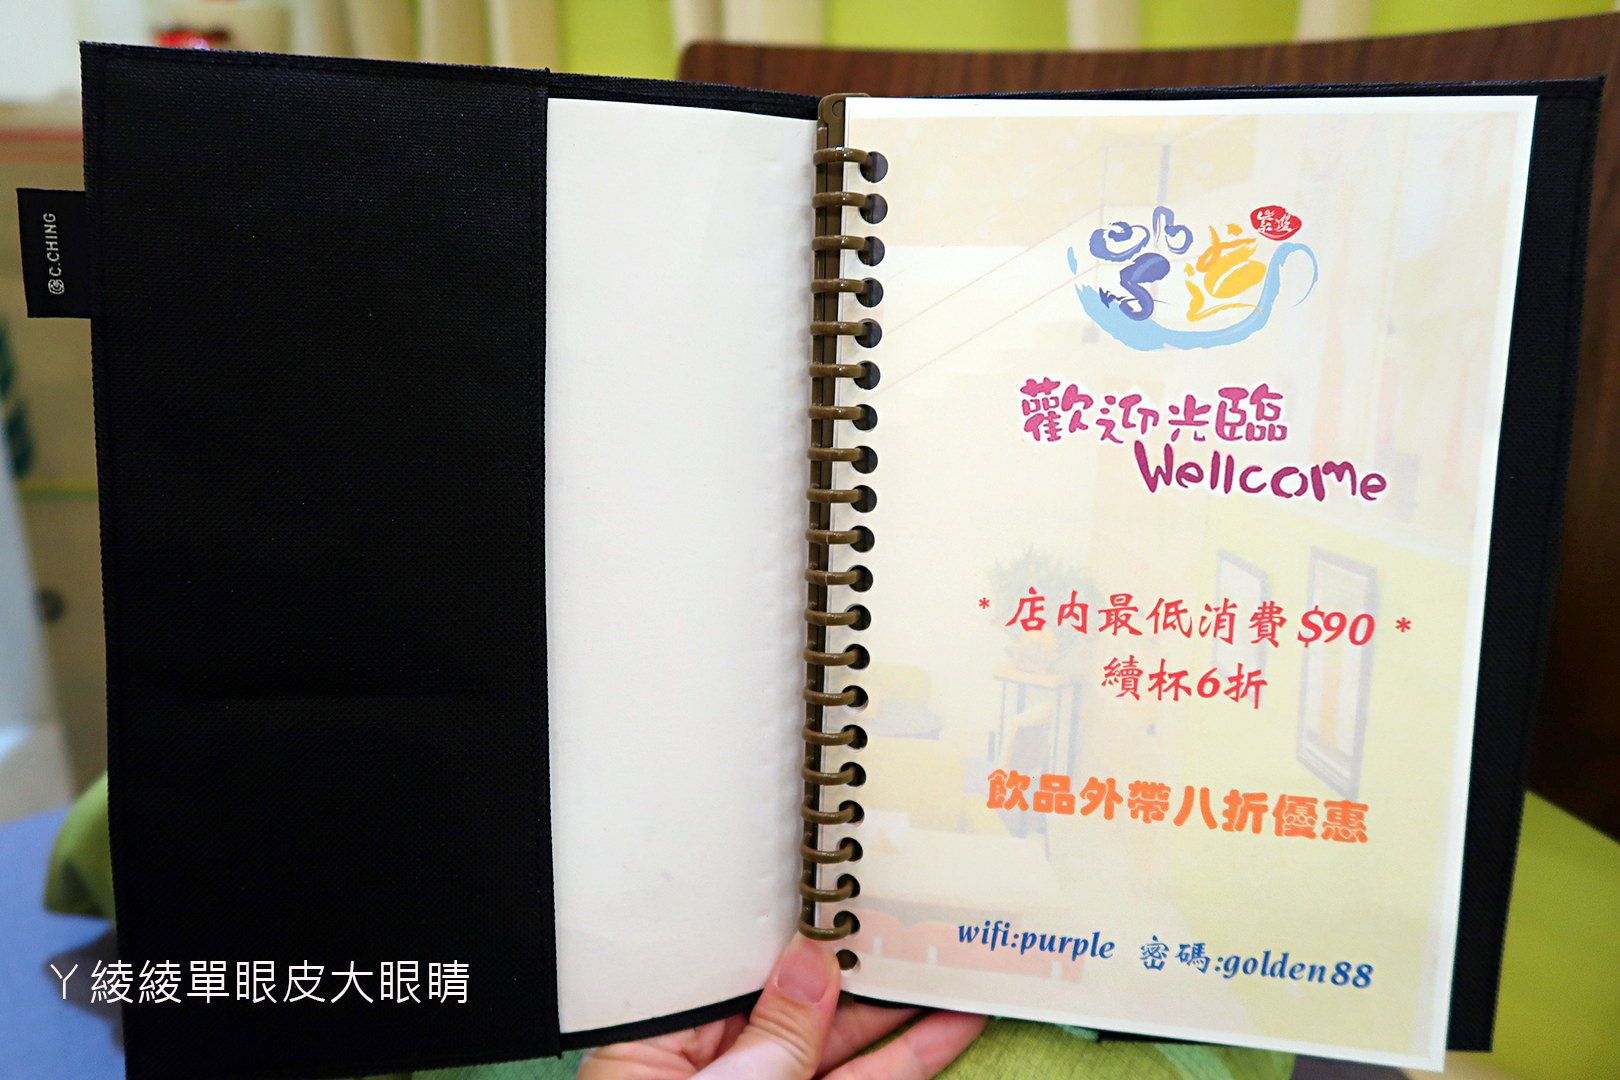 C.CHING
紫造
歡迎光臨
Wellcome
* 店內最低消費 $90 *
續杯6折
飲品外帶八折優惠
wifi:purple 密碼:golden88
ㄚ綾綾單眼皮大眼睛